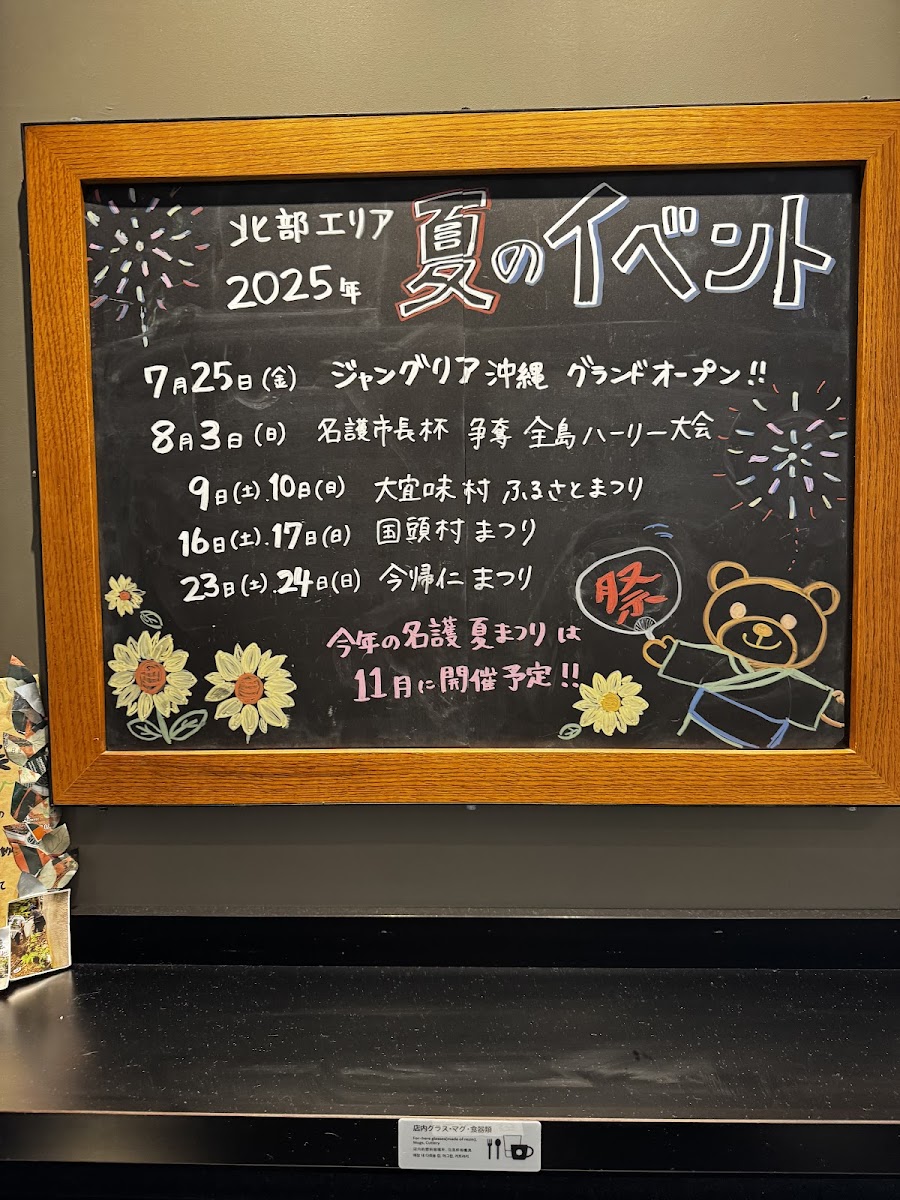 北部エリア
2025年
夏のイベント
7月25日(金) ジャングリア沖縄 グランドオープン!!
8月3日(日) 名護市長杯 争奪 全島ハーリー大会
9日(土).10日(日) 大宜味村 ふるさとまつり
16日(土).17日(日) 国頭村まつり
23日(土).24日(日) 今帰仁まつり
祭
今年の名護夏まつりは
11月に開催予定!!
店内グラス・マグ・食器類